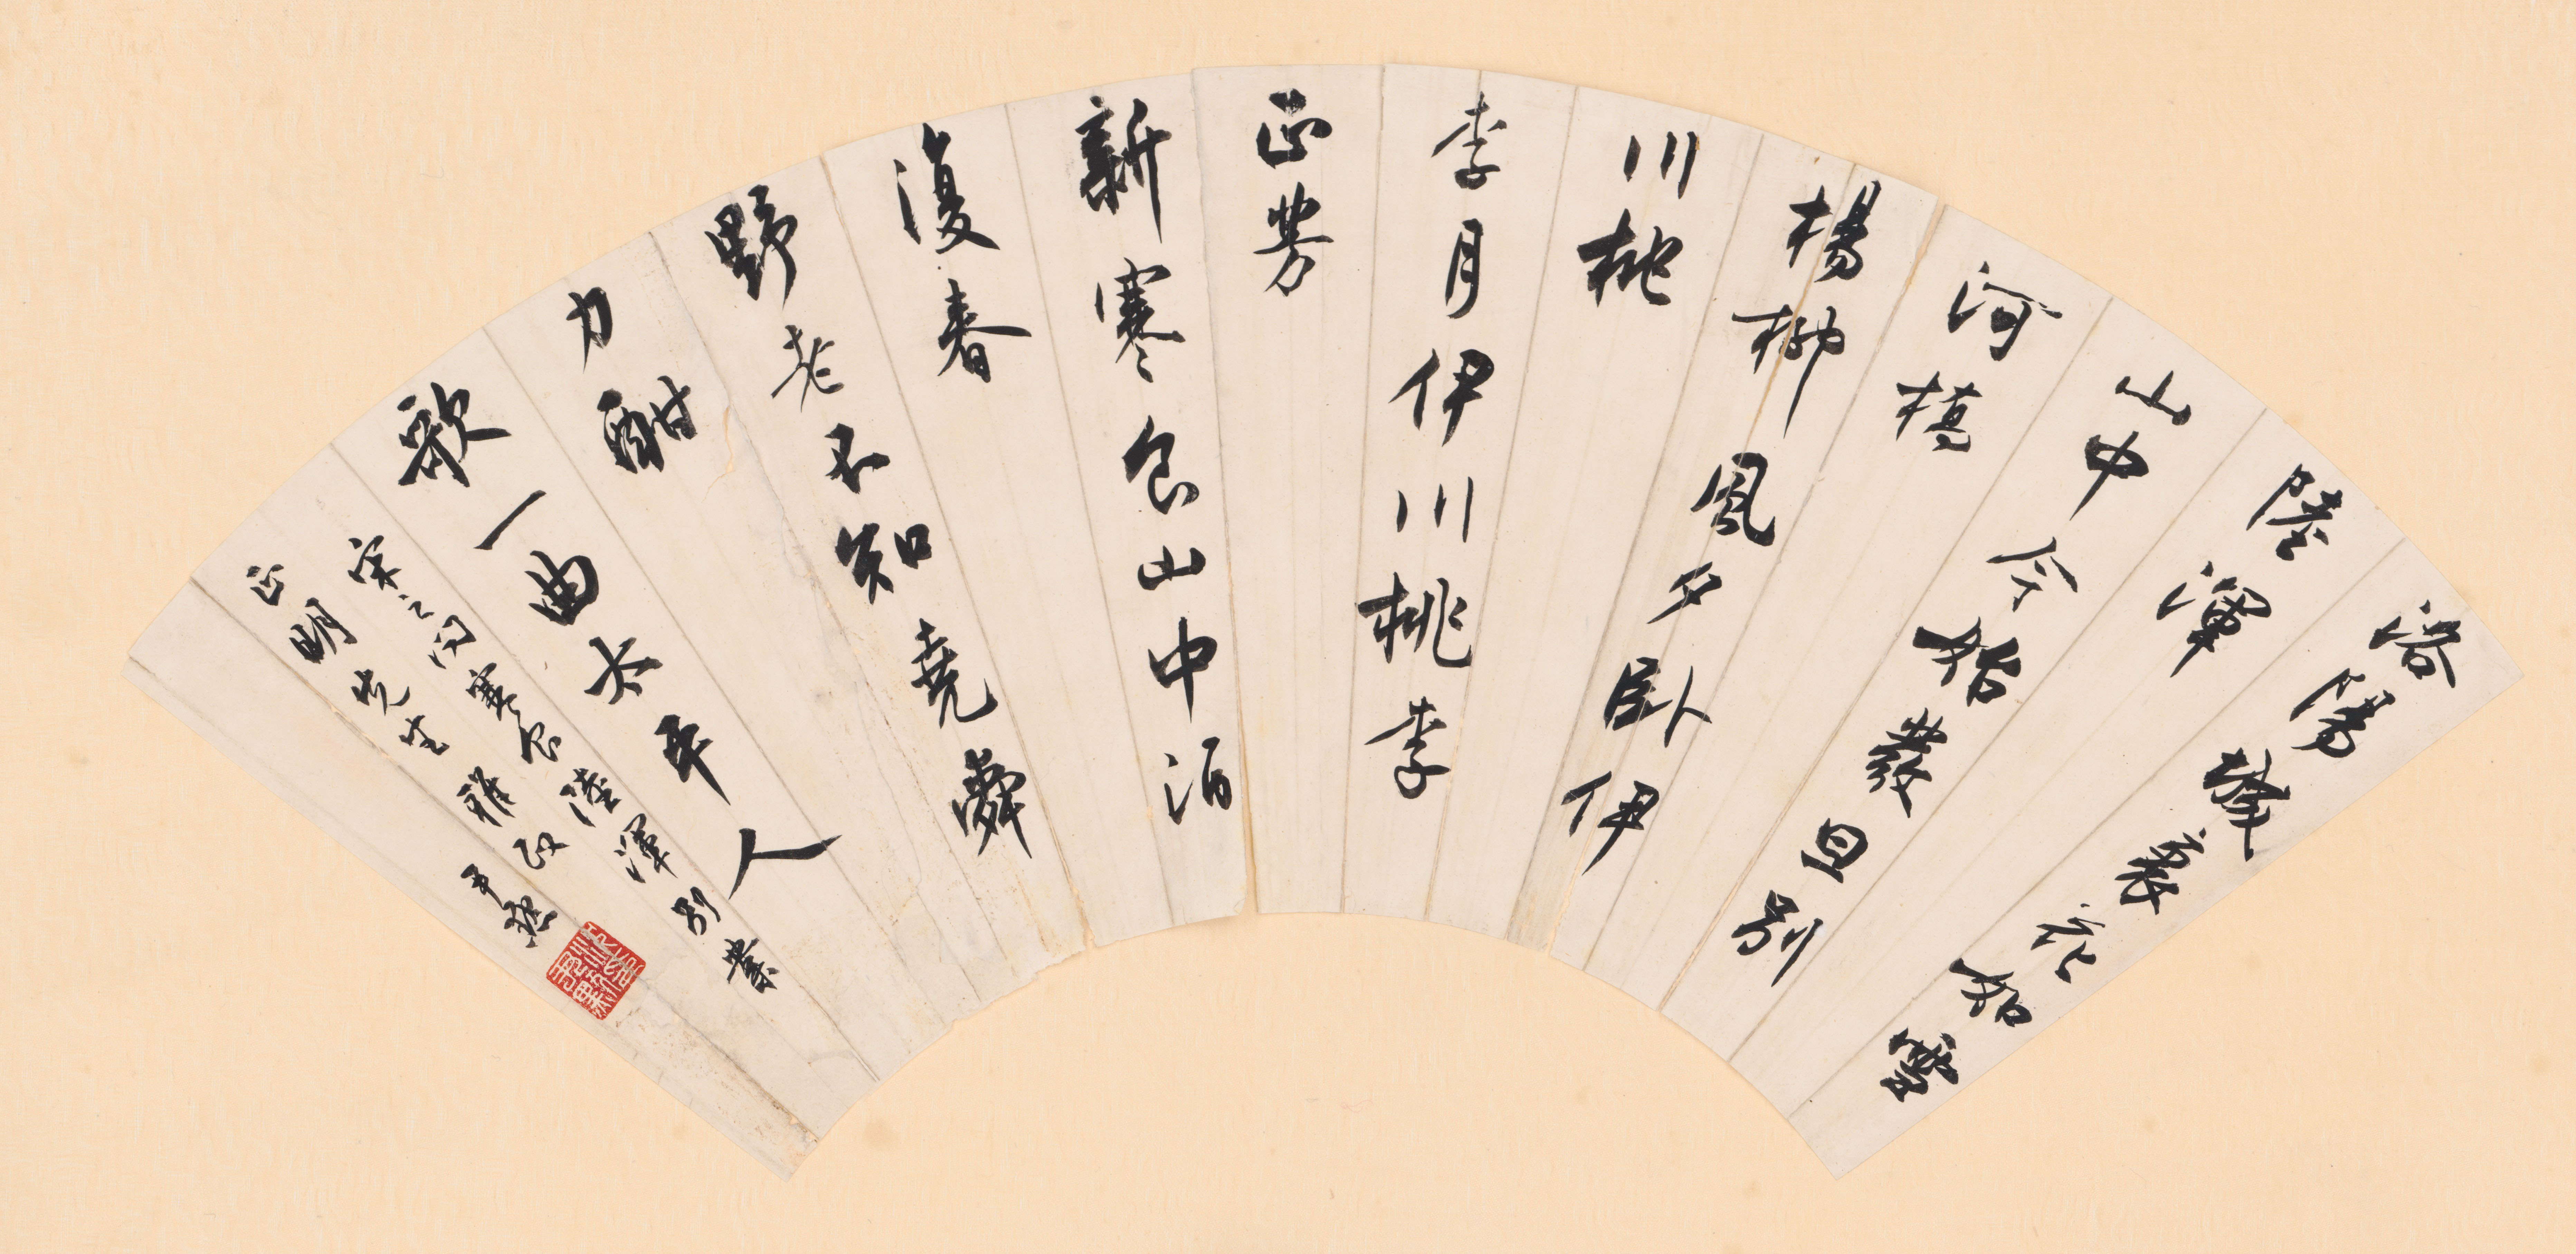 洛陽城裏花如雪
陸渾
山中今始發旦別
河橋
楊柳風夕臥伊
川桃
李月伊川桃李
正芳
新寒食山中酒
復春
野老不知堯舜
力酣
歌一曲太平人
宋之问寒食陸渾別業
正明先生雅政 尹默